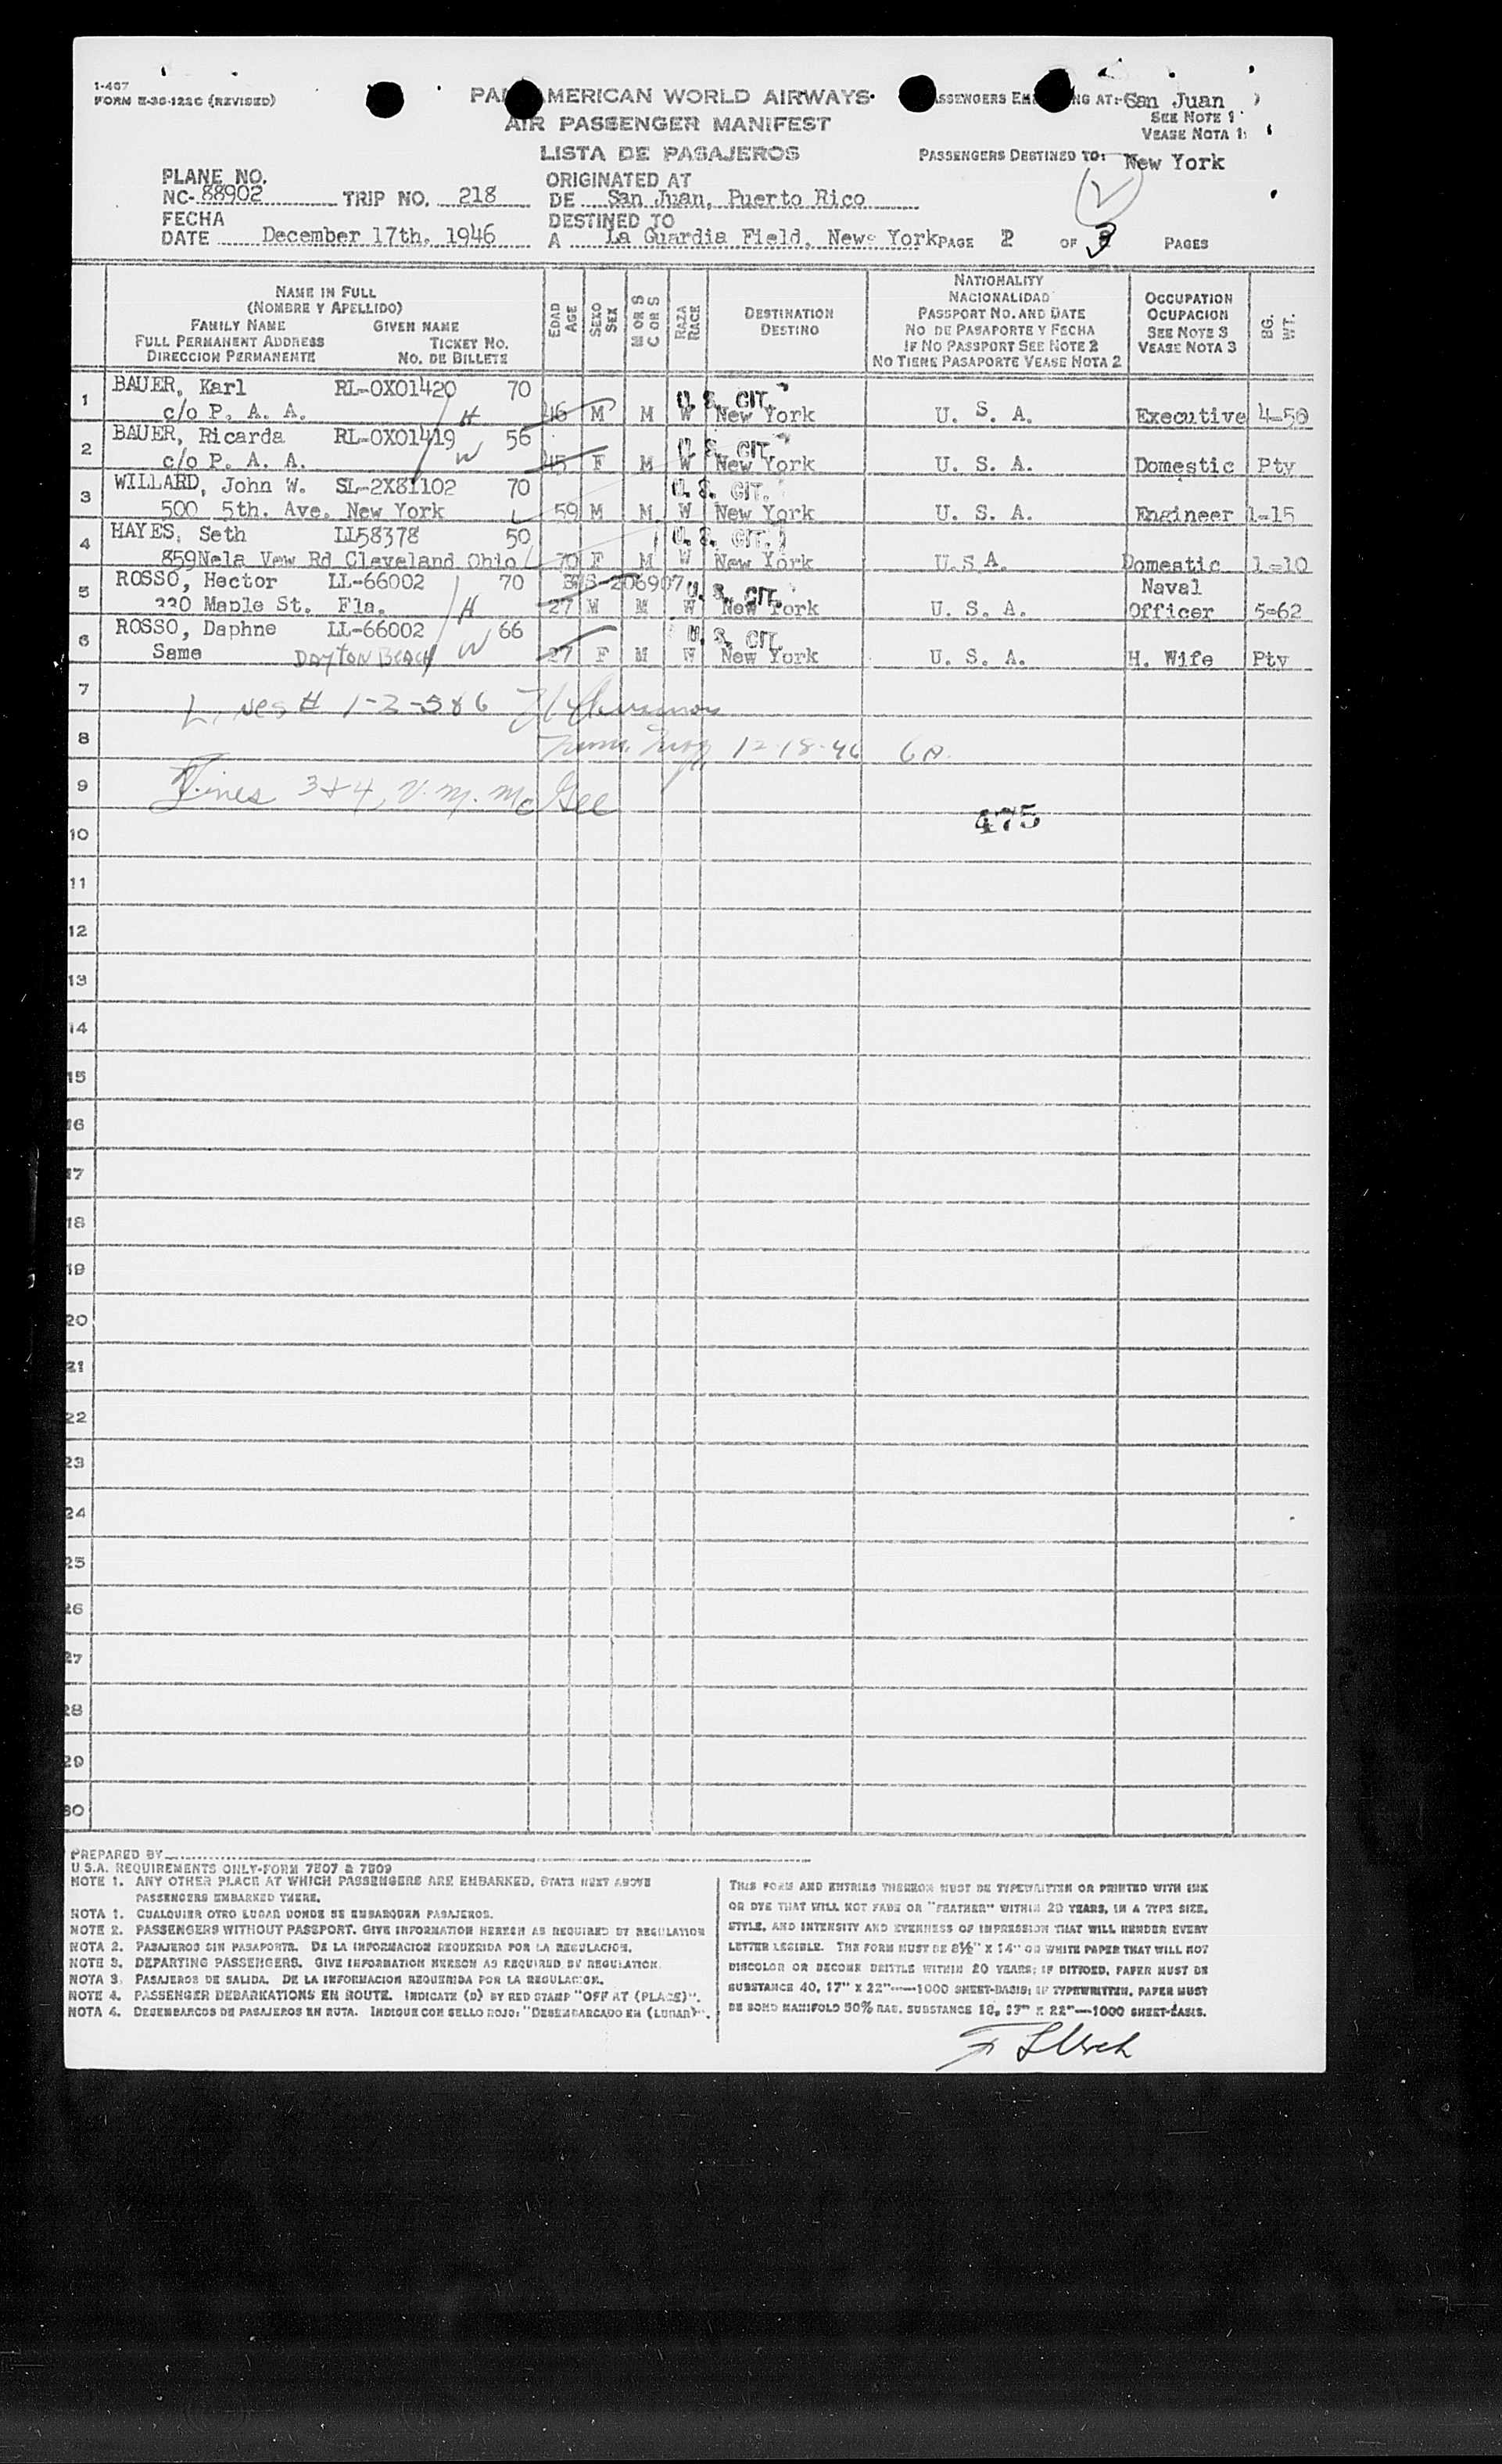 1-467
FORM E-36-122C (REVISED)
PAN AMERICAN WORLD AIRWAYS
AIR PASSENGER MANIFEST
LISTA DE PASAJEROS
PASSENGERS EMBARKING AT: San Juan
SEE NOTE 1
VEASE NOTA 1
PASSENGERS DESTINED TO: New York
PLANE NO.
NC- 88902 TRIP NO. 218
ORIGINATED AT
DE San Juan, Puerto Rico
FECHA
DATE December 17th, 1946
DESTINED TO
A La Guardia Field, New York PAGE 2 OF 3 PAGES
NAME IN FULL
(NOMBRE Y APELLIDO)
FAMILY NAME GIVEN NAME
FULL PERMANENT ADDRESS TICKET NO.
DIRECCION PERMANENTE NO. DE BILLETE
EDAD AGE
SEXO SEX
M OR S C OR S
RAZA RACE
DESTINATION
DESTINO
NATIONALITY
NACIONALIDAD
PASSPORT NO. AND DATE
NO DE PASAPORTE Y FECHA
IF NO PASSPORT SEE NOTE 2
NO TIENE PASAPORTE VEASE NOTA 2
OCCUPATION
OCUPACION
SEE NOTE 3
VEASE NOTA 3
BG. WT.
1 BAUER, Karl RL-0X01420 70 U. S. CIT.
c/o P. A. A. H 46 M M W New York U. S. A. Executive 4-50
2 BAUER, Ricarda RL-0X01419 56 U. S. CIT.
c/o P. A. A. W 45 F M W New York U. S. A. Domestic Pty
3 WILLARD, John W. SL-2X81102 70 U. S. CIT.
500 5th. Ave. New York 59 M M W New York U. S. A. Engineer 1-15
4 HAYES, Seth LL58378 50 U. S. CIT.
859Nela Vew Rd Cleveland Ohio 70 F M W New York U.S.A. Domestic 1-10
5 ROSSO, Hector LL-66002 70 206907 U. S. CIT. Naval
220 Maple St. Fla. H 27 M M W New York U. S. A. Officer 5-62
6 ROSSO, Daphne LL-66002 66 U. S. CIT.
Same DAYTON BEACH W 27 F M W New York U. S. A. H. Wife Pty
7 Lines # 1-2-5&6
8 12-18-46
9 Lines 3+4, V. M. McGee
475
10
11
12
13
14
15
16
17
18
19
20
21
22
23
24
25
26
27
28
29
30
PREPARED BY
U.S.A. REQUIREMENTS ONLY-FORM 7507 & 7509
NOTE 1. ANY OTHER PLACE AT WHICH PASSENGERS ARE EMBARKED, STATE NEXT ABOVE
PASSENGERS EMBARKED THERE.
NOTA 1. CUALQUIER OTRO LUGAR DONDE SE EMBARQUEN PASAJEROS.
NOTE 2. PASSENGERS WITHOUT PASSPORT. GIVE INFORMATION HEREON AS REQUIRED BY REGULATION
NOTA 2. PASAJEROS SIN PASAPORTE. DE LA INFORMACION REQUERIDA POR LA REGULACION.
NOTE 3. DEPARTING PASSENGERS. GIVE INFORMATION HEREON AS REQUIRED BY REGULATION.
NOTA 3. PASAJEROS DE SALIDA. DE LA INFORMACION REQUERIDA POR LA REGULACION.
NOTE 4. PASSENGER DEBARKATIONS EN ROUTE. INDICATE (D) BY RED STAMP "OFF AT (PLACE)".
NOTA 4. DESEMBARCOS DE PASAJEROS EN RUTA. INDIQUE CON SELLO ROJO: "DESEMBARCADO EN (LUGAR)".
THIS FORM AND ENTRIES THEREON MUST BE TYPEWRITTEN OR PRINTED WITH INK
OR DYE THAT WILL NOT FADE OR "FEATHER" WITHIN 20 YEARS, IN A TYPE SIZE,
STYLE, AND INTENSITY AND EVENNESS OF IMPRESSION THAT WILL RENDER EVERY
LETTER LEGIBLE. THE FORM MUST BE 8½" X 14" ON WHITE PAPER THAT WILL NOT
DISCOLOR OR BECOME BRITTLE WITHIN 20 YEARS; IF DITTOED, PAPER MUST BE
SUBSTANCE 40, 17" X 22"—1000 SHEET-BASIS; IF TYPEWRITTEN, PAPER MUST
BE BOND MANIFOLD 50% RAG, SUBSTANCE 18, 17" X 22"—1000 SHEET-BASIS.